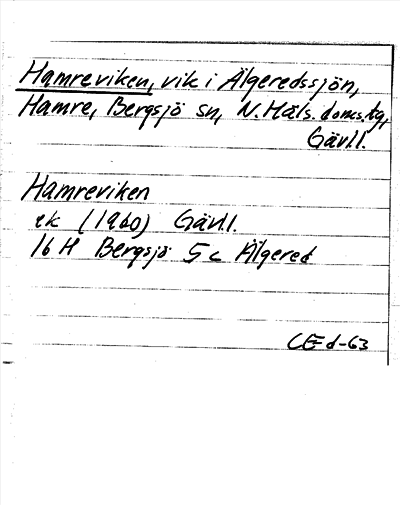 Hamreviken, vik i Älgeredssjön,
Hamre, Bergsjö sn, N. Häls. doms.tg,
Gävl.l.
Hamreviken
ek (1960) Gävl.l.
16 H Bergsjö 5 c Älgered
CE d-63